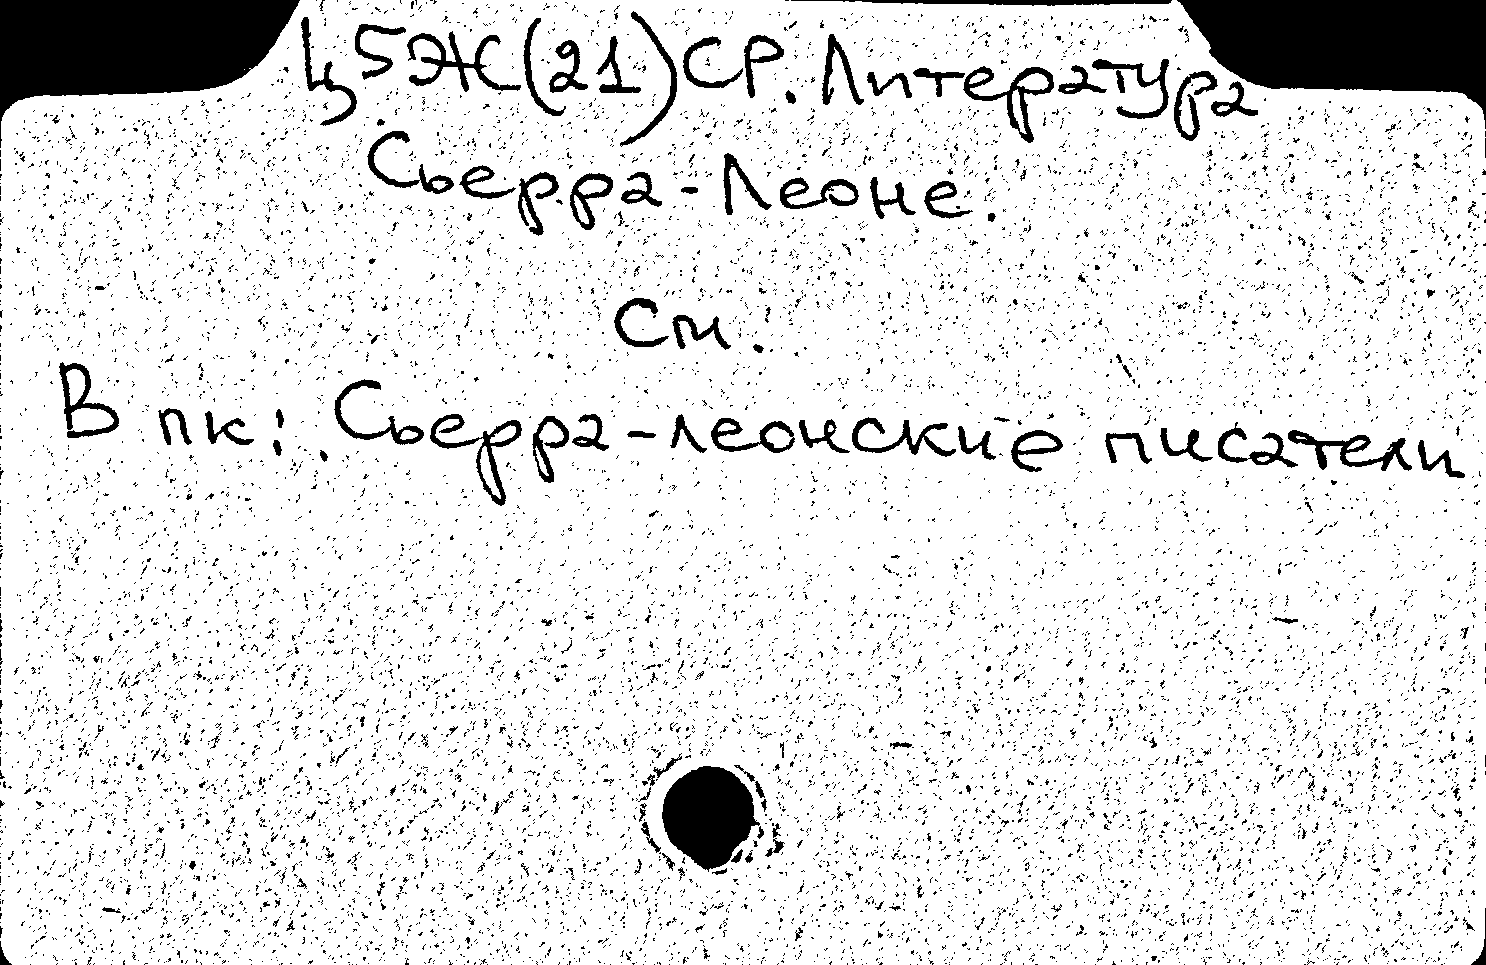 Ц5Ж(21)СР. Литература
Сьерра-Леоне.
См.
В пк: Сьерра-леонские писатели